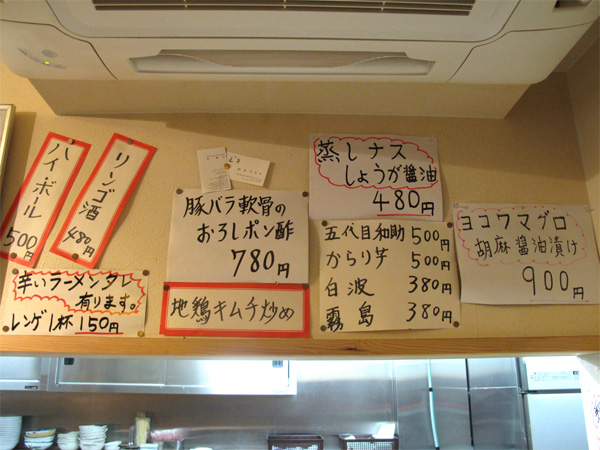 ハイボール
500円
リンゴ酒
480円
辛いラーメンタレ
有ります。
レンゲ1杯 150円
豚バラ軟骨の
おろしポン酢
780円
地鶏キムチ炒め
蒸しナス
しょうが醤油
480円
五代目和助 500円
からり芋 500円
白波 380円
霧島 380円
ヨコワマグロ
胡麻醤油漬け
900円